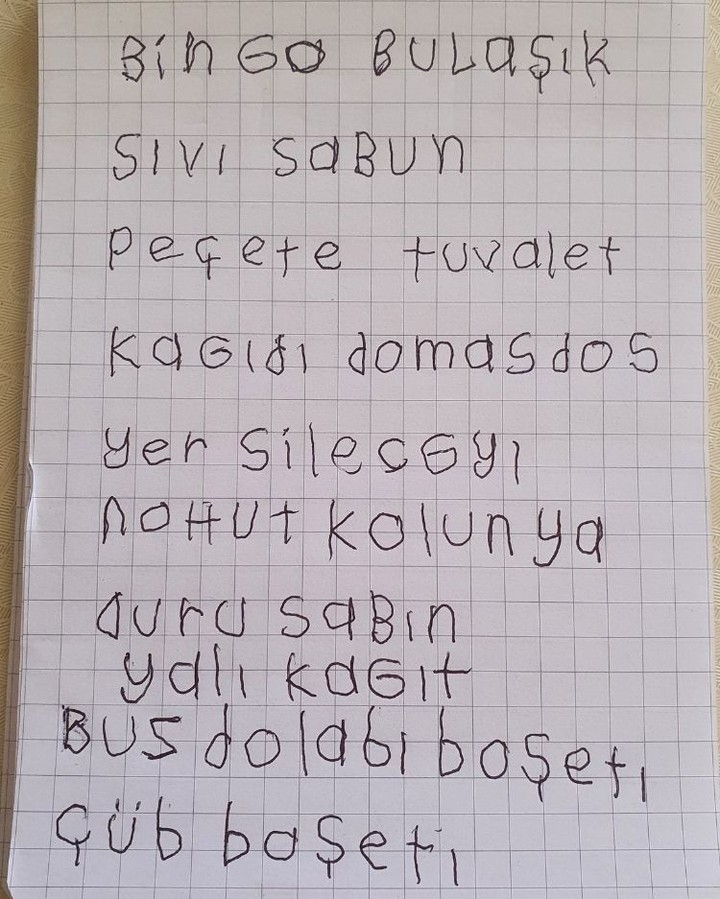 BinGO BULAŞIK
SIVI SABUN
peçete tuvalet
KAGIdI domasdos
yer SilecGyı
nOHUt KOlUnya
duru SABın
yalı KAGIt
BUS dolabı boşetı
Çüb boşetı